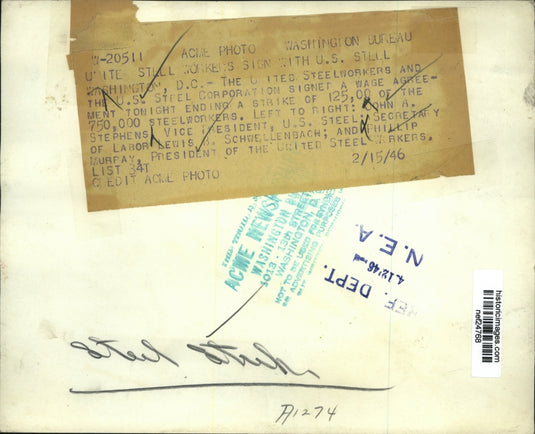 W-20511 ACME PHOTO WASHINGTON BUREAU
UNITE STEEL WORKERS SIGN WITH U.S. STEEL
WASHINGTON, D.C. - THE UNITED STEELWORKERS AND
THE U.S. STEEL CORPORATION SIGNED A WAGE AGREE-
MENT TONIGHT ENDING A STRIKE OF 125,00 OF THE
750,000 STEELWORKERS. LEFT TO RIGHT: JOHN A.
STEPHENS, VICE PRESIDENT, U.S. STEEL; SECRETARY
OF LABOR LEWIS B. SCHWELLENBACH; AND PHILLIP
MURRAY, PRESIDENT OF THE UNITED STEEL WORKERS.
LIST 34T 2/15/46
CREDIT ACME PHOTO
ACME NEWS
WASHINGTON
1013 - 13th STREET
WASHINGTON, D.
NOT TO BE USED FOR
ADVERTISING PURPOSES
REF. DEPT.
N.E.A.
historicimages.com
nef24768
Steel Strike
A1274